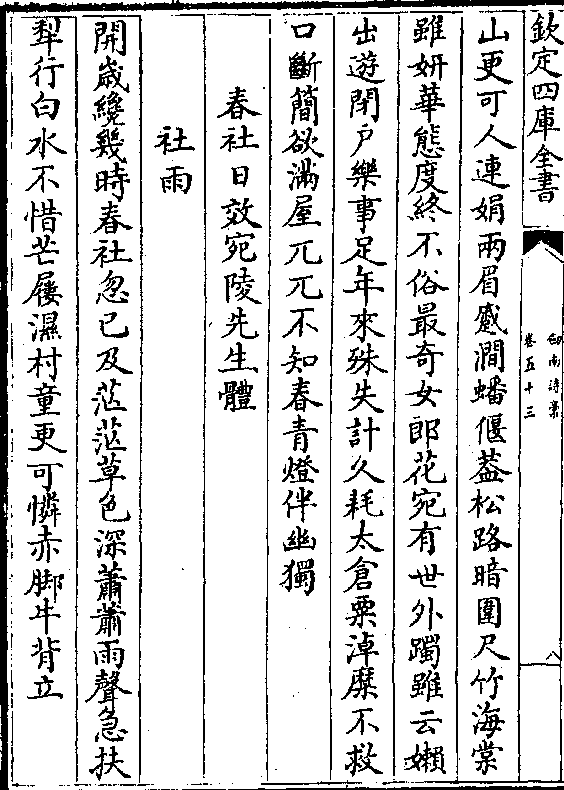 欽定四庫全書
劍南詩藁
卷五十三
八
山更可人連娟兩眉蹙澗蟠偃葢松路暗圍尺竹海棠
雖妍華態度終不俗最奇女郎花宛有世外躅雖云嬾
出遊閉戶樂事足年來殊失計久耗太倉粟淖糜不救
口斷簡欲滿屋兀兀不知春青燈伴幽獨
春社日效宛陵先生體
社雨
開歲纔幾時春社忽已及茫茫草色深蕭蕭雨聲急扶
犁行白水不惜芒屨濕村童更可憐赤脚牛背立